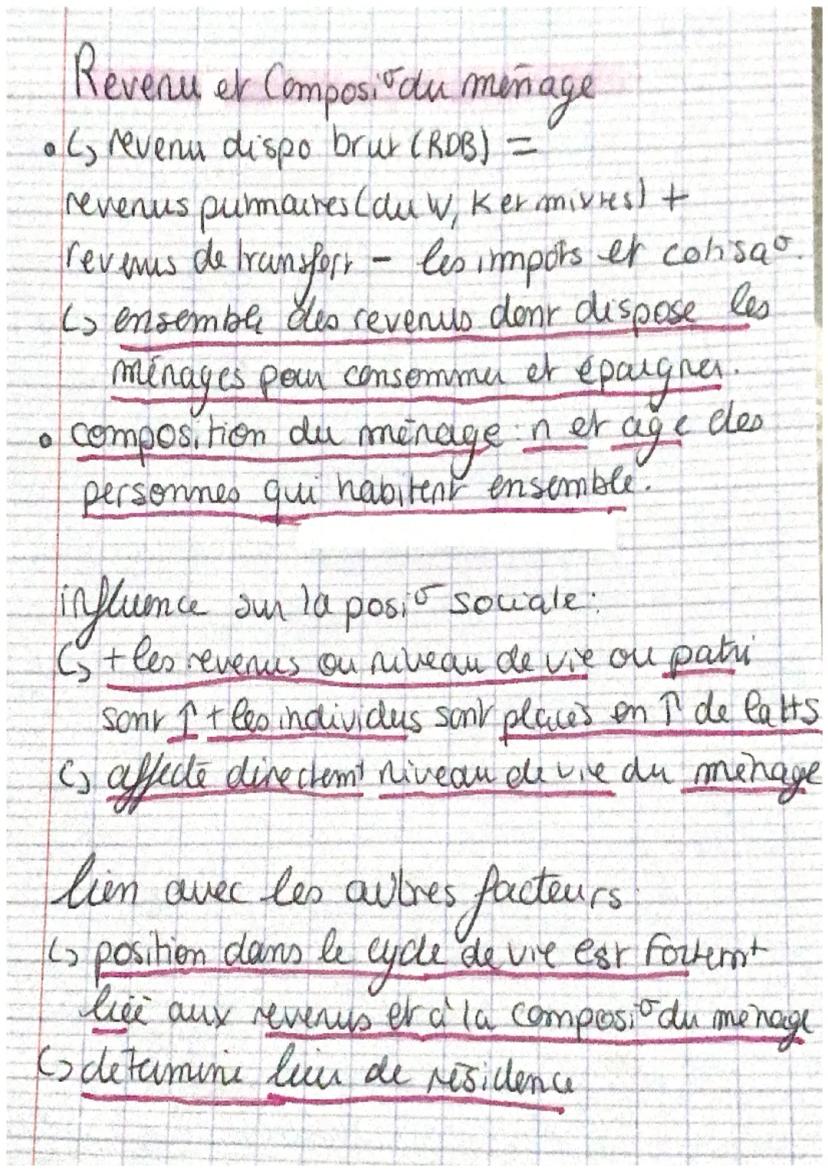 Revenu et Composi° du ménage
• ↳ revenu dispo brut (RDB) =
revenus primaires (du W, K et mixtes) +
revenus de transfert - les impôts et cotisa°.
↳ ensemble des revenus dont dispose les
ménages pour consommer et épargner.
• composition du ménage : n et age des
personnes qui habitent ensemble.
influence sur la posi° sociale :
↳ + les revenus ou niveau de vie ou patri
sont ↑ + les individus sont placés en ↑ de la HS
↳ affecte directemt niveau de vie du ménage
lien avec les autres facteurs :
↳ position dans le cycle de vie est fortemt
liée aux revenus et à la composi° du ménage
↳ determine lieu de résidence